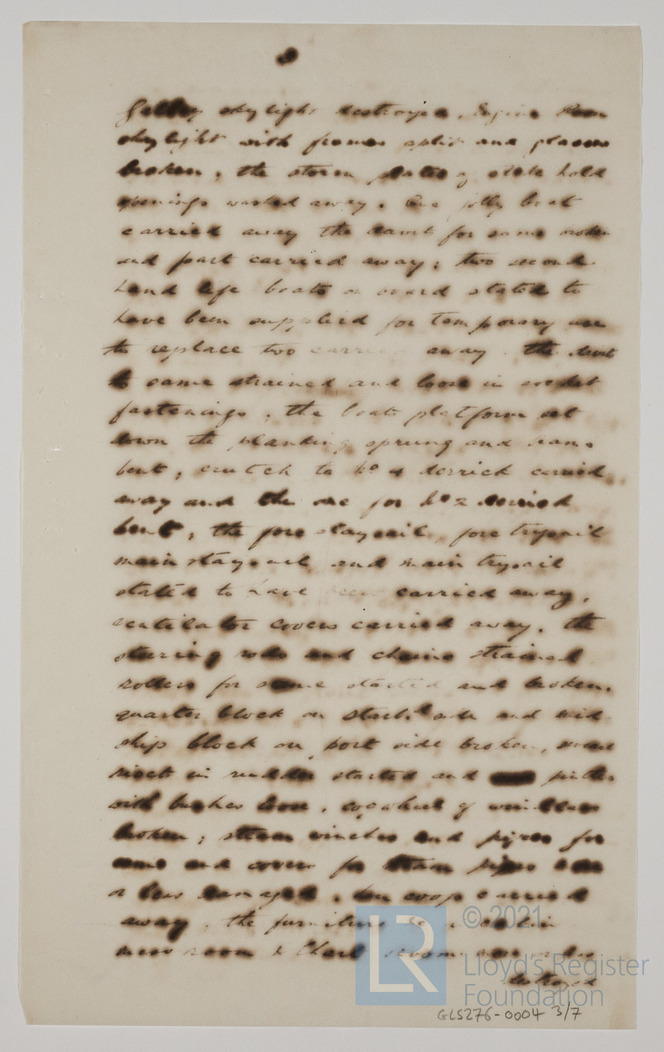 3
Galley skylight destroyed, Engine Room
skylight with frames split and glasses
broken, the storm plates of stoke hold
openings washed away. One jolly boat
carried away the davit for same broken
and part carried away, two second
hand life boats on board stated to
have been supplied for temporary use
to replace two carried away. the
to same strained and loose in socket
fastenings, the boats platform set
down the planking sprung and
bent, crutch to No 4 derrick carried
away and the one for No 2 derrick
bent, the fore staysail, fore trysail
main staysail and main trysail
stated to have been carried away,
ventilator covers carried away. the
steering rods and chains strained
rollers for same started and broken.
quarter block on starbd side and mid
ship block on port side broken,
in rudder started and
with bushes loose, of windlass
broken, steam winches and pipes for
same and covers for steam pipes
or less damaged, hen coop carried
away, the furniture
mess room & Chart room
destroyed
LR
© 2021
Lloyd's Register
Foundation
GLS276-0004 3/7